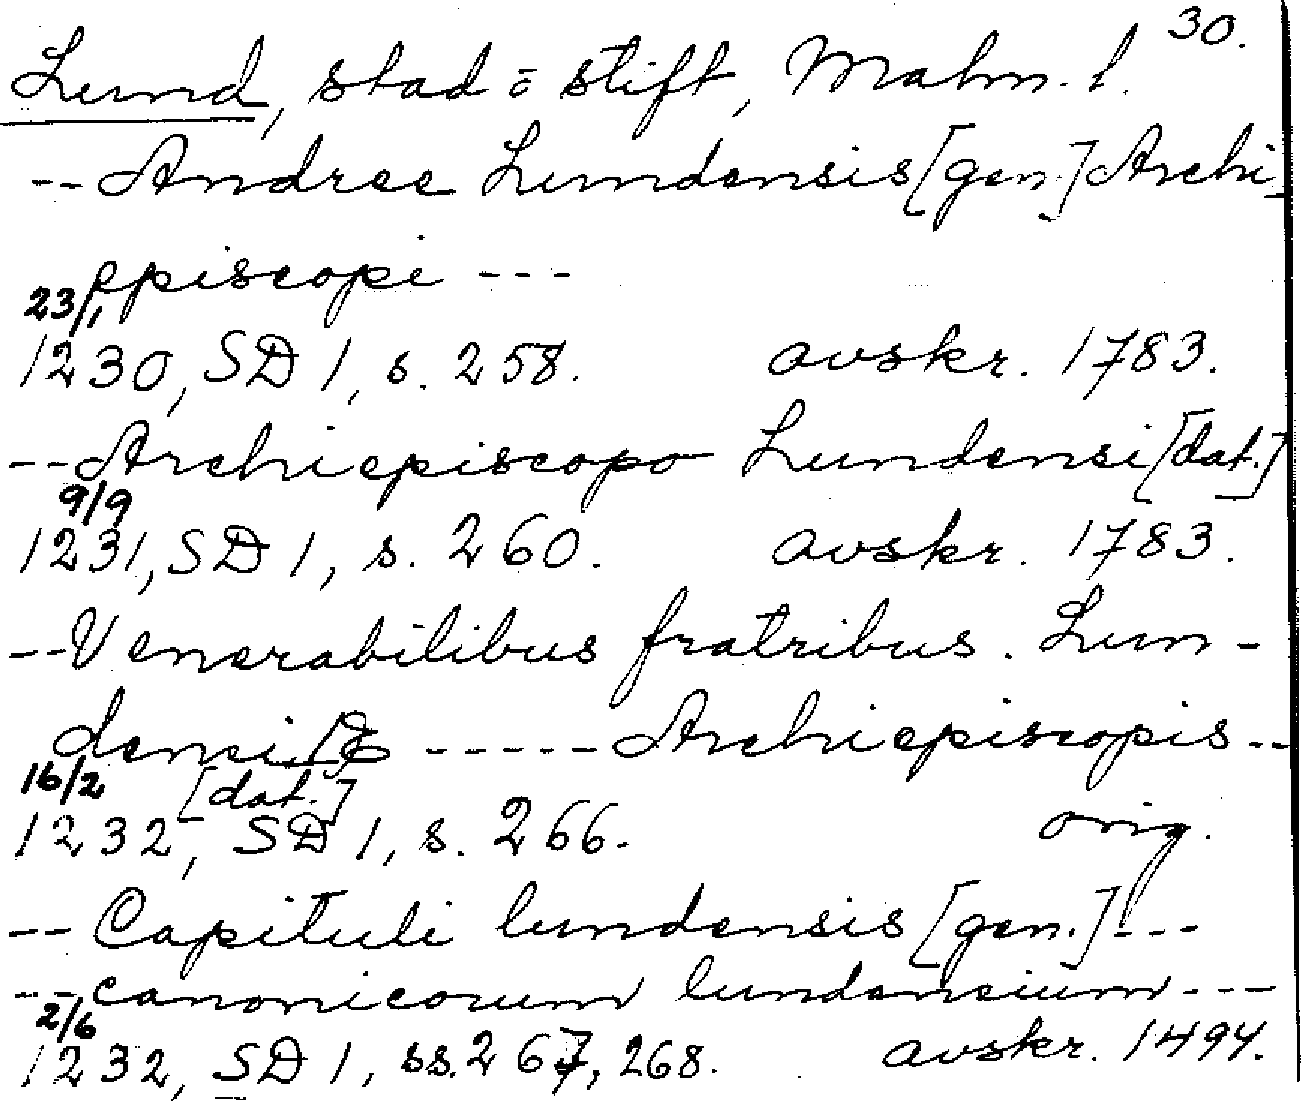 30.
Lund, stad o stift, Malm. l.
-- Andree Lundensis [gen.] Archi-
episcopi ---
23/1
1230, SD 1, s. 258. avskr. 1783.
-- Archiepiscopo Lundensi [dat.]
9/9
1231, SD 1, s. 260. avskr. 1783.
-- Venerabilibus fratribus. Lun-
densi ----- Archiepiscopis --
16/2 [dat.]
1232, SD 1, s. 266. orig.
-- Capituli lundensis [gen.] ---
--- canonicorum lundensium ---
2/6
1232, SD 1, ss. 267, 268. avskr. 1494.